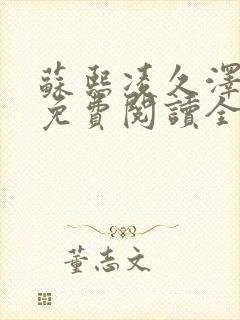 蘇熙凌久澤
免費閱讀全
董志文